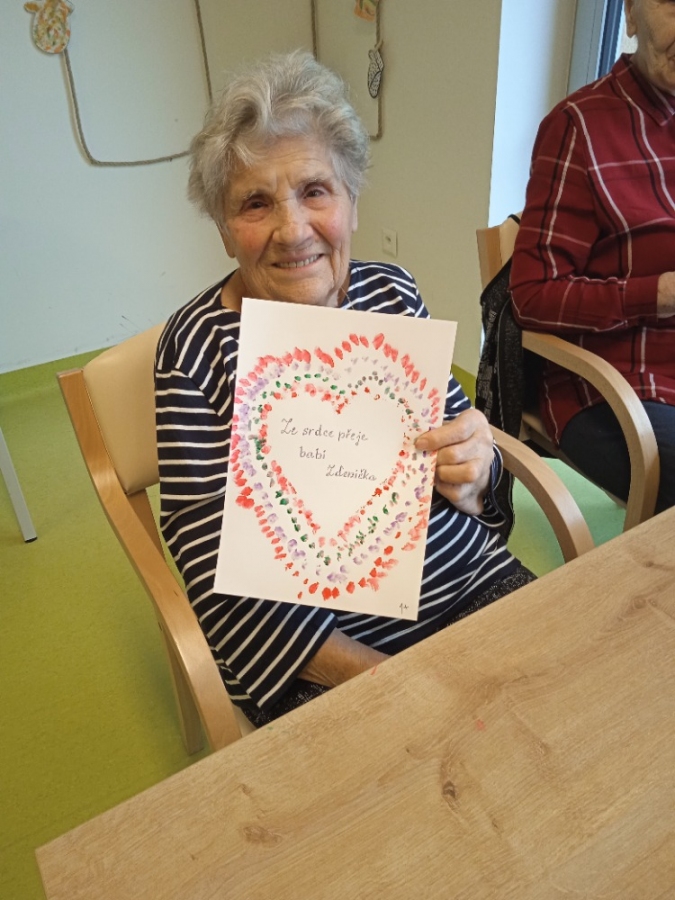 Ze srdce přeje
babi
Zdenička